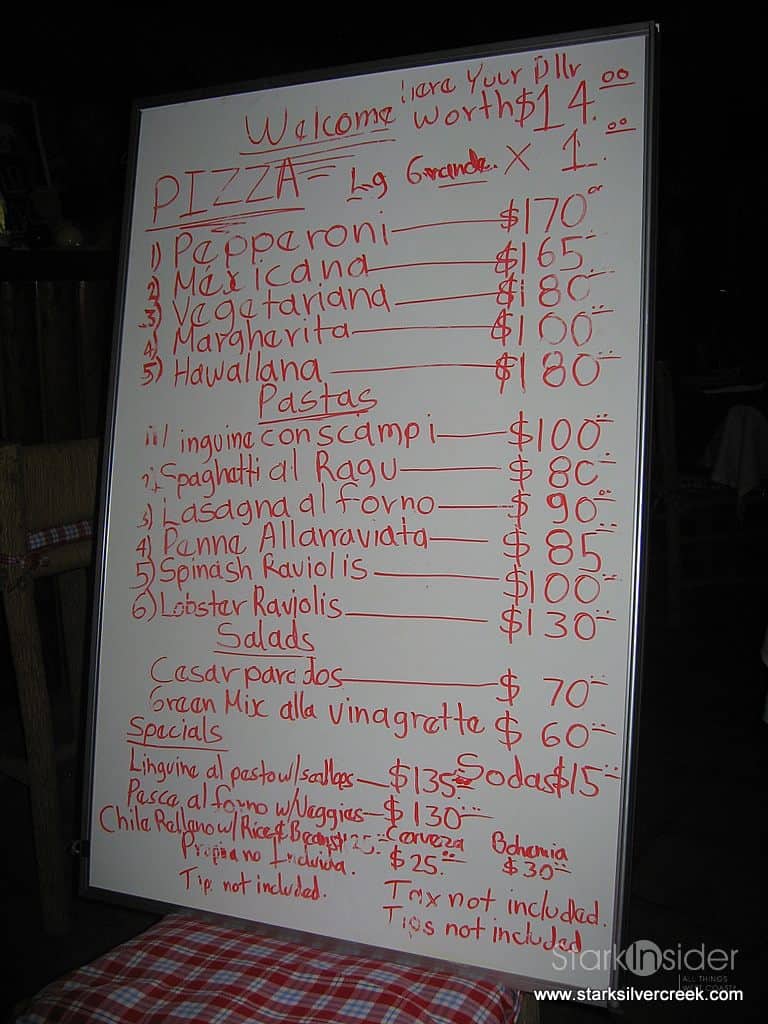 Welcome Here Your Dllr
worth $14.00
PIZZA= Lg Grande. X 1.00
1) Pepperoni $170
2) Mexicana $165
3) Vegetariana $180
4) Margherita $100
5) Hawallana $180
Pastas
inguine con scampi $100
Spaghetti al Ragu $80
3) Lasagna al forno $90
4) Penne Allarraviata $85
5) Spinash Raviolis $100
6) Lobster Raviolis $130
Salads
Cesar para dos $70
Green Mix alla vinagrette $60
Specials
Linguine al pesto w/ $135 Sodas $15
Pasca al forno w/Veggies $130
Chile Rellano w/ Rice & Beans Cerveza Bohemia
Propina no Incluida. $25. $30
Tip. not included. Tax not included.
Tips not included
StarkInsider
ALL THINGS
www.starksilvercreek.com